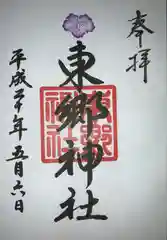 奉拝
東郷神社
平成二十年五月六日